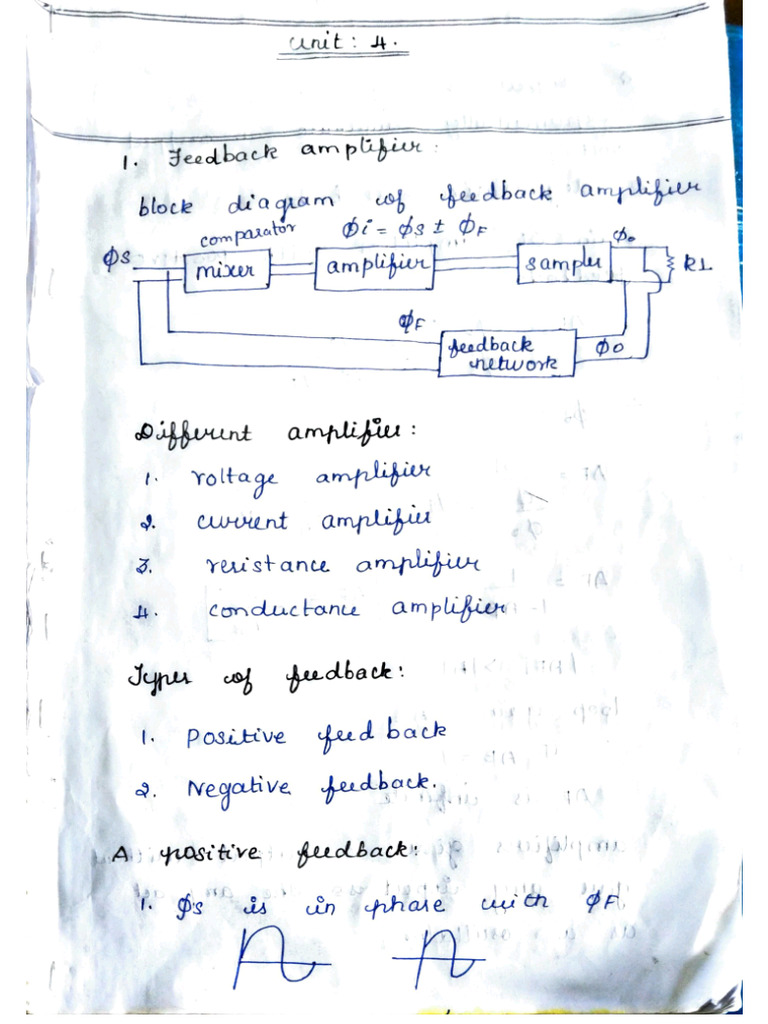 Unit: 4.
1. Feedback amplifier:
block diagram of feedback amplifier
comparator φi = φs ± φF φo
φs mixer amplifier sampler RL
φF
feedback network φo
Different amplifier:
1. voltage amplifier
2. current amplifier
3. resistance amplifier
4. conductance amplifier
Types of feedback:
1. Positive feedback
2. Negative feedback.
A positive feedback:
1. φs is in phase with φF